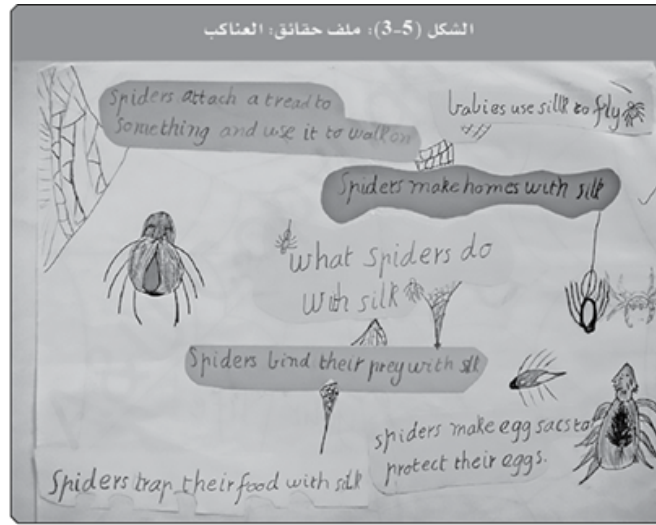 الشكل (5-3): ملف حقائق: العناكب
spiders attach a tread to
something and use it to walk on
babies use sillk to fly
Spiders make homes with silk
what spiders do
with silk
Spiders bind their prey with silk
spiders make egg sacs to
protect their eggs.
Spiders trap their food with silk